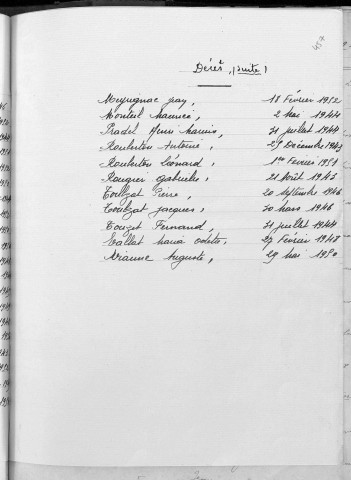 457
Décés, (suite)
Meyrignac Guy, 18 Février 1952
Monteil Maurice, 2 Mai 1944
Pradel Henri Marius, 31 juillet 1944
Rouberton Antoine, 29 Décembre
Rouberton Léonard, 1er Février 1951
Rougier Gabrielle, 21 Août 1945
Toulzat Pierre, 20 septembre 1946
Toulzat Jacques, 30 Mars 1946
Touzet Fernand, 31 juillet 1944
Vallat Maria Odette, 27 Février 1948
Vianne Auguste, 29 Mai 1950